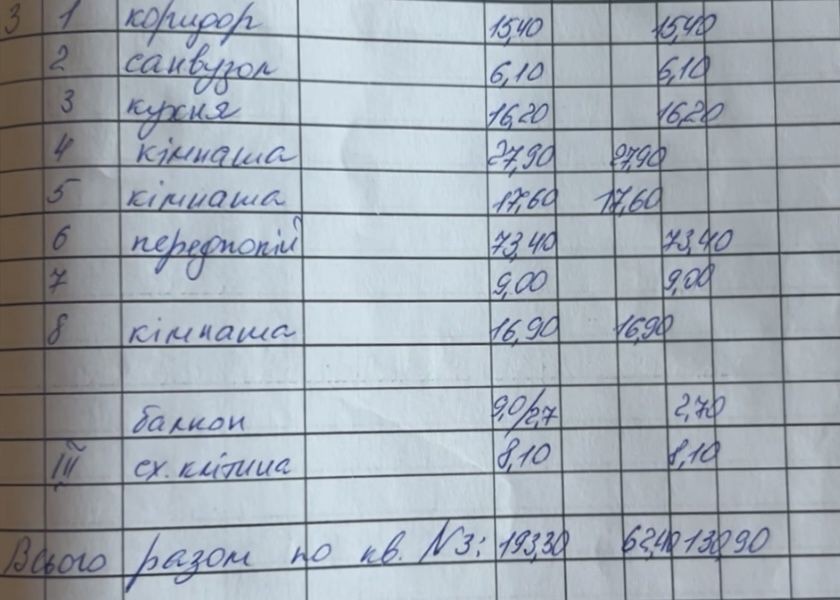 3 1 коридор 15,40 15,40
2 санвузол 6,10 6,10
3 кухня 16,20 16,20
4 кімната 27,90 27,90
5 кімната 17,60 17,60
6 передпокій 73,40 73,40
7 9,00 9,00
8 кімната 16,90 16,90
балкон 9,0/2,7 2,70
III сх. клітина 8,10 8,10
Всього разом по кв. N3: 193,30 62,40 130,90